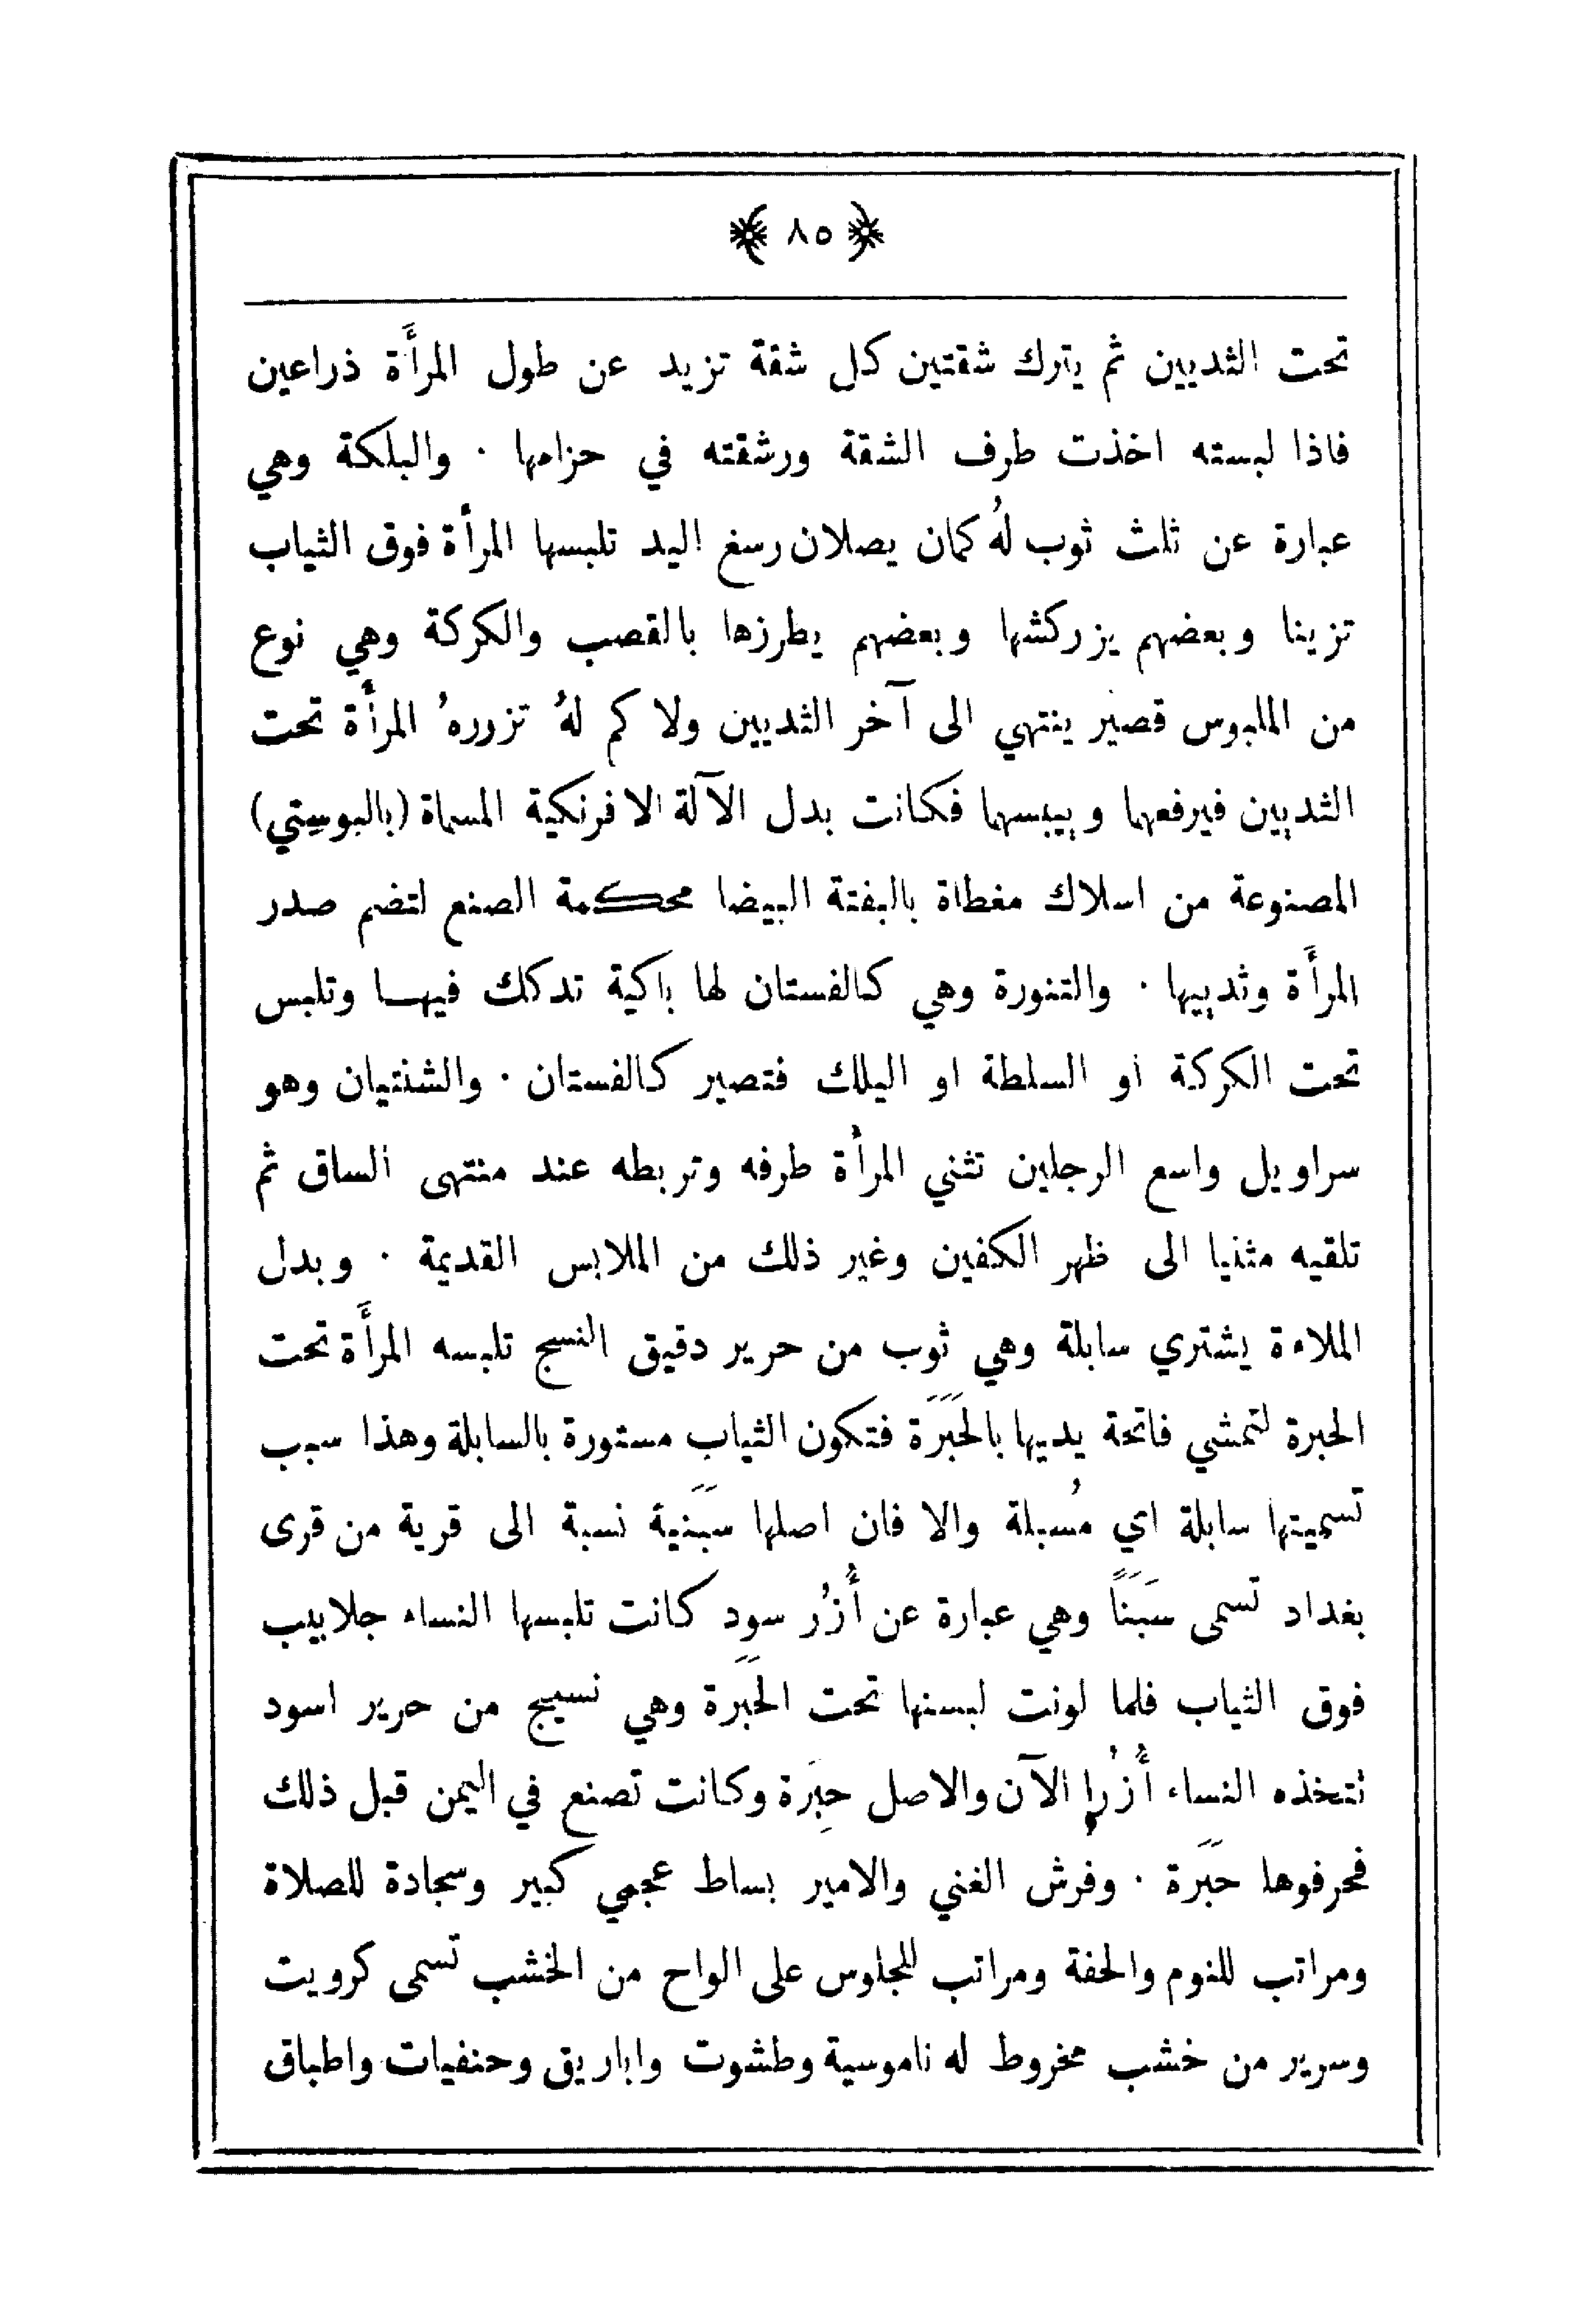 ﴿ ٨٥ ﴾
تحت الثديين ثم يترك شقتين كل شقة تزيد عن طول المرأَة ذراعين
فاذا لبسته اخذت طرف الشقة ورشقته في حزامها · والبلكة وهي
عبارة عن ثلث ثوب لهُ كمان يصلان رسغ اليد تلبسها المرأة فوق الثياب
تزينا وبعضهم يزركشها وبعضهم يطرزها بالقصب والكركة وهي نوع
من الملبوس قصير ينتهي الى آخر الثديين ولا كم لهُ تزررهُ المرأة تحت
الثديين فيرفعها وييبسها فكانت بدل الآلة الافرنكية المسماة (بالبوستي)
المصنوعة من اسلاك مغطاة بالبفتة البيضا محكمة الصنع لتضم صدر
المرأَة وثدييها · والتنورة وهي كالفستان لها باكية تدكك فيها وتلبس
تحت الكركة او السلطة او اليلك فتصير كالفستان · والشنتيان وهو
سراويل واسع الرجلين تثني المرأة طرفه وتربطه عند منتهى الساق ثم
تلقيه مثنيا الى ظهر الكفين وغير ذلك من الملابس القديمة · وبدل
الملاءة يشتري سابلة وهي ثوب من حرير دقيق النسج تلبسه المرأَة تحت
الحبرة لتمشي فاتحة يديها بالحَبَرَة فتكون الثياب مستورة بالسابلة وهذا سبب
تسميتها سابلة اي مُسبلة والا فان اصلها سَبَنية نسبة الى قرية من قرى
بغداد تسمى سَبَنًا وهي عبارة عن أُزُر سود كانت تلبسها النساء جلابيب
فوق الثياب فلما لونت لبسنها تحت الحَبَرة وهي نسيج من حرير اسود
تتخذه النساء أُزُرا الآن والاصل حِبَرة وكانت تصنع في اليمن قبل ذلك
فحرفوها حَبَرة · وفرش الغني والامير بساط عجمي كبير وسجادة للصلاة
ومراتب للنوم والحفة ومراتب للجلوس على الواح من الخشب تسمى كرويت
وسرير من خشب مخروط له ناموسية وطشوت واباريق وحنفيات واطباق